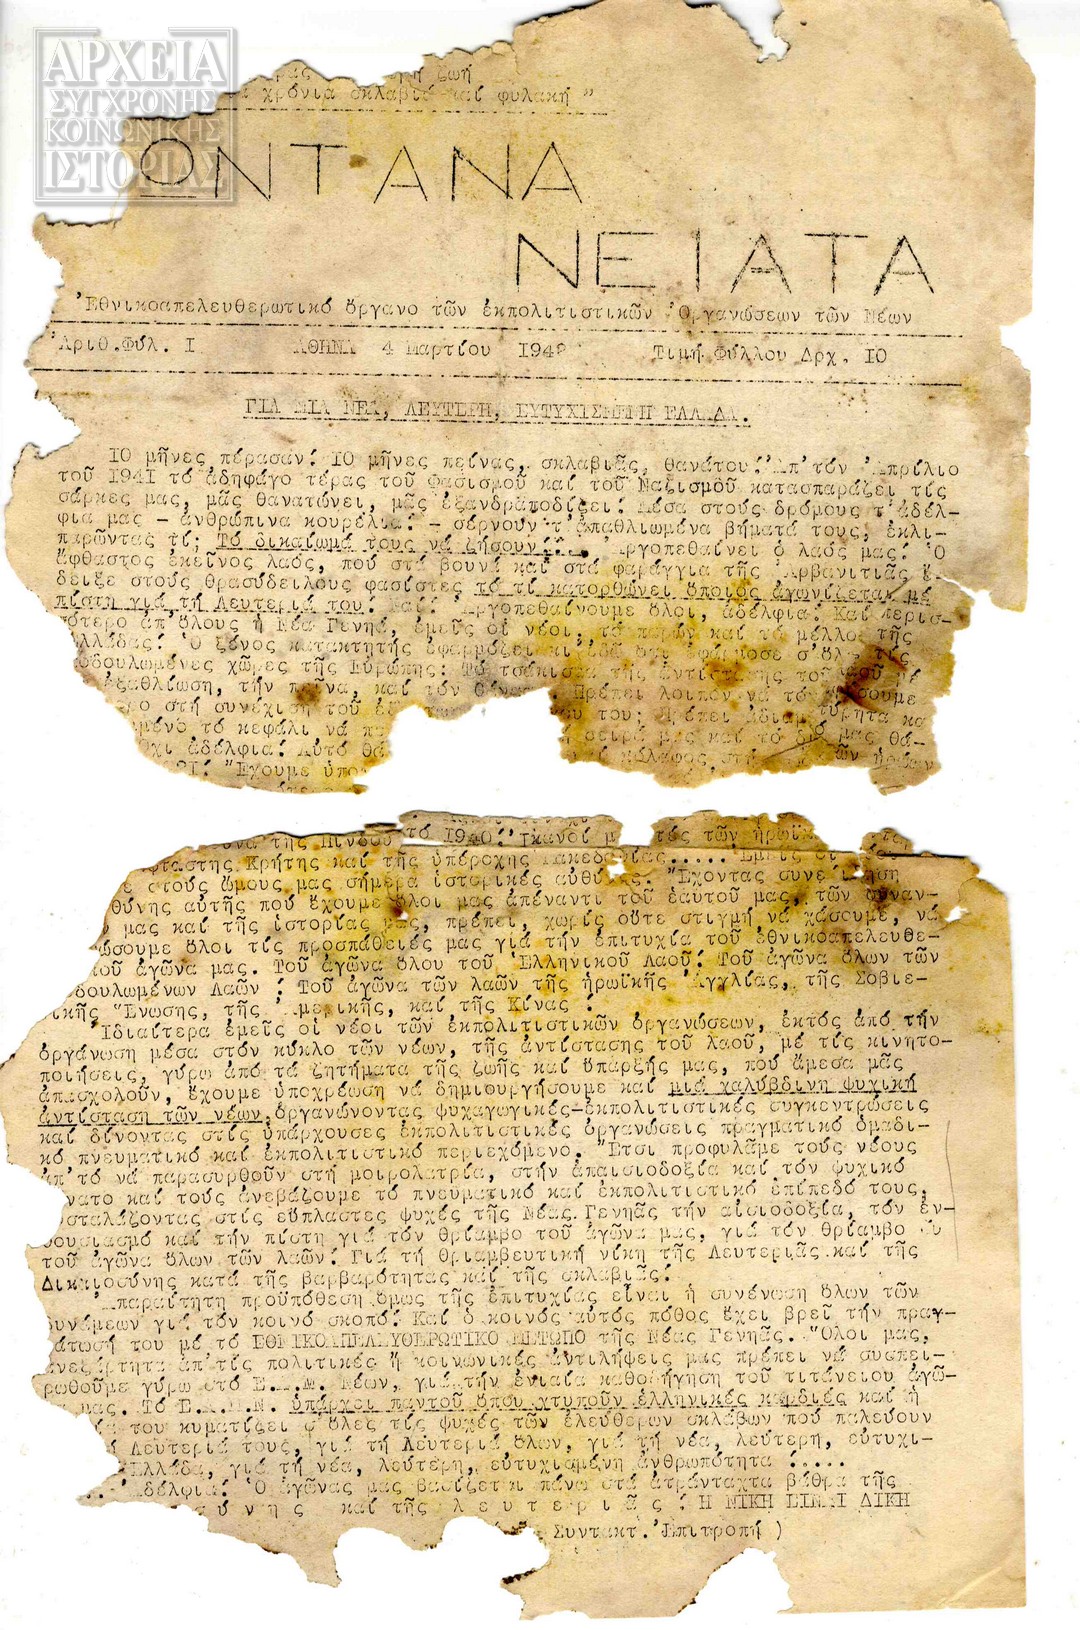 ΑΡΧΕΙΑ
ΣΥΓΧΡΟΝΗΣ
ΚΟΙΝΩΝΙΚΗΣ
ΙΣΤΟΡΙΑΣ
ζωή
χρόνια σκλαβιά καί φυλακή"
ΩΝΤΑΝΑ
ΝΕΙΑΤΑ
Ἐθνικοαπελευθερωτικό ὄργανο τῶν ἐκπολιτιστικῶν Ὀργανώσεων τῶν Νέων
Ἀριθ.Φύλ. Ι ΑΘΗΝΑ 4 Μαρτίου Τιμή Φύλλου Δρχ. ΙΟ
ΓΙΑ ΜΙΑ ΝΕΑ, ΛΕΥΤΕΡΗ, ΕΥΤΥΧΙΣΜΕΝΗ ΕΛΛΑΔΑ.
ΙΟ μῆνες πέρασαν! ΙΟ μῆνες πείνας, σκλαβιᾶς, θανάτου! Ἀπ'τόν Ἀπρίλιο
τοῦ Ι94Ι τό ἀδηφάγο τέρας τοῦ Φασισμοῦ καί τοῦ Ναζισμοῦ κατασπαράζει τίς
σάρκες μας, μᾶς θανατώνει, μᾶς ἐξανδραποδίζει! Μέσα στούς δρόμους τ'ἀδέλ-
φια μας - ἀνθρώπινα κουρέλια! - σέρνουν τ'ἀπαθλιωμένα βήματά τους, ἐκλι-
παρῶντας τί; Τό δικαίωμά τους νά ζήσουν!... Ἀργοπεθαίνει ὁ λαός μας! Ὁ
ἄφθαστος ἐκεῖνος λαός, πού στά βουνά καί στά φαράγγια τῆς Ἀρβανιτιᾶς ἔ-
δειξε στούς θρασύδειλους φασίστες τό τί κατορθώνει ὅποιος ἀγωνίζεται μέ
πίστη γιά τή Λευτεριά του! Ναί! Ἀργοπεθαίνουμε ὅλοι, ἀδέλφια! Καί περισ-
σότερο ἀπ'ὅλους ἡ Νέα Γενηά, ἐμεῖς οἱ νέοι, τό παρόν καί τό μέλλο τῆς
λλάδας! Ὁ ξένος κατακτητής ἐφαρμόζει κι ἐδῶ ὅτι ἐφάρμοσε σ'ὅλες τίς
οδουλωμένες χῶρες τῆς Εὐρώπης: Τό τσάκισμα τῆς ἀντίστασης τοῦ λαοῦ μέ
ἐξαθλίωση, τήν πεῖνα, καί τόν Πρέπει λοιπόν νά τόν
στή συνέχιση τοῦ του; Πρέπει ἀδιαμαρτύρητα κα
μένο τό κεφάλι νά σειρά μας καί τό μας θά-
χι ἀδέλφια! Αὐτό θά
ΟΧΙ! Ἔχουμε
τῆς Πίνδου τό Ι940! Ἱκανοί τῶν
φταστης Κρήτης καί τῆς ὑπέροχης Μακεδονίας..... Ἐμεῖς οἱ
στούς ὤμους μας σήμερα ἱστορικές εὐθῦνες. Ἔχοντας συνείδηση
θύνης αὐτῆς πού ἔχουμε ὅλοι μας ἀπέναντι τοῦ ἑαυτοῦ μας, τῶν συναν-
μας καί τῆς ἱστορίας μας, πρέπει, χωρίς οὔτε στιγμή νά χάσουμε, νά
ώσουμε ὅλοι τίς προσπάθειές μας γιά τήν ἐπιτυχία τοῦ ἐθνικοαπελευθε-
κοῦ ἀγῶνα μας. Τοῦ ἀγῶνα ὅλου τοῦ Ἑλληνικοῦ Λαοῦ! Τοῦ ἀγῶνα ὅλων τῶν
δουλωμένων Λαῶν! Τοῦ ἀγῶνα τῶν λαῶν τῆς ἡρωϊκῆς Ἀγγλίας, τῆς Σοβιε-
τικῆς Ἕνωσης, τῆς Ἀμερικῆς, καί τῆς Κίνας!
Ἰδιαίτερα ἐμεῖς οἱ νέοι τῶν ἐκπολιτιστικῶν ὀργανώσεων, ἐκτός ἀπό τήν
ὀργάνωση μέσα στόν κύκλο τῶν νέων, τῆς ἀντίστασης τοῦ λαοῦ, μέ τίς κινητο-
ποιήσεις, γύρω ἀπό τά ζητήματα τῆς ζωῆς καί ὕπαρξής μας, πού ἄμεσα μᾶς
ἀπασχολοῦν, ἔχουμε ὑποχρέωση νά δημιουργήσουμε καί μιά χαλύβδινη ψυχική
ἀντίσταση τῶν νέων,ὀργανώνοντας ψυχαγωγικές-ἐκπολιτιστικές συγκεντρώσεις
καί δίνοντας στίς ὑπάρχουσες ἐκπολιτιστικές ὀργανώσεις πραγματικό ὁμαδι-
κό πνευματικό καί ἐκπολιτιστικό περιεχόμενο. Ἔτσι προφυλᾶμε τούς νέους
ἀπ'τό νά παρασυρθοῦν στή μοιρολατρία, στήν ἀπαισιοδοξία καί τόν ψυχικό
άνατο καί τούς ἀνεβάζουμε τό πνευματικό καί ἐκπολιτιστικό ἐπίπεδό τους,
σταλάζοντας στίς εὔπλαστες ψυχές τῆς Νέας Γενηᾶς τήν αἰσιοδοξία, τόν ἐν-
θουσιασμό καί τήν πίστη γιά τόν θρίαμβο τοῦ ἀγῶνα μας, γιά τόν θρίαμβο
τοῦ ἀγῶνα ὅλων τῶν λαῶν! Γιά τή θριαμβευτική νίκη τῆς Λευτεριᾶς καί τῆς
Δικαιοσύνης κατά τῆς βαρβαρότητας καί τῆς σκλαβιᾶς!
Ἀπαραίτητη προϋπόθεση ὅμως τῆς ἐπιτυχίας εἶναι ἡ συνένωση ὅλων τῶν
δυνάμεων γιά τόν κοινό σκοπό! Καί ὁ κοινός αὐτός πόθος ἔχει βρεῖ τήν πραγ-
μάτωσή του μέ τό ΕΘΝΙΚΟΑΠΕΛΕΥΘΕΡΩΤΙΚΟ ΜΕΤΩΠΟ τῆς Νέας Γενηᾶς. Ὅλοι μας,
ἀνεξάρτητα ἀπ'τίς πολιτικές ἤ κοινωνικές ἀντιλήψεις μας πρέπει νά συσπει-
ρωθοῦμε γύρω στό Ε.Α.Μ. Νέων, γιά τήν ἑνιαία καθοδήγηση τοῦ τιτάνειου ἀγῶ-
μας. Τό Ε.Α.Μ.Ν. ὑπάρχει παντοῦ ὅπου χτυποῦν ἑλληνικές καρδιές καί ἡ
του κυματίζει σ'ὅλες τίς ψυχές τῶν ἐλεύθερων σκλάβων πού παλεύουν
Λευτεριά τους, γιά τή Λευτεριά ὅλων, γιά τή νέα, λεύτερη, εὐτυχι-
Ἑλλάδα, γιά τή νέα, λεύτερη, εὐτυχισμένη ἀνθρωπότητα!.....
Ἀδέλφια! Ὁ ἀγῶνας μας βασίζεται πάνω στά ἀτράνταχτα βάθρα τῆς
σύνης καί τῆς λευτεριᾶς! Η ΝΙΚΗ ΕΙΝΑΙ ΔΙΚΗ
Συντακτ. Ἐπιτροπή)